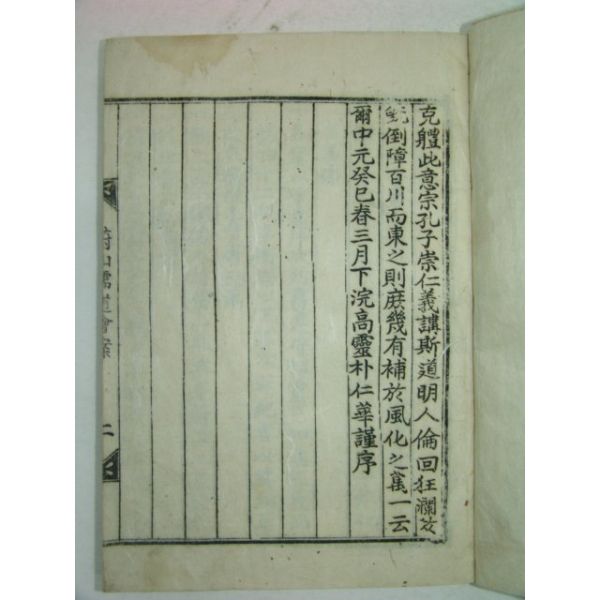 克軆此意宗孔子崇仁義講斯道明人倫回狂瀾於
既倒障百川而東之則庶幾有補於風化之萬一云
爾中元癸巳春三月下浣高靈朴仁華謹序
儒道會案
二